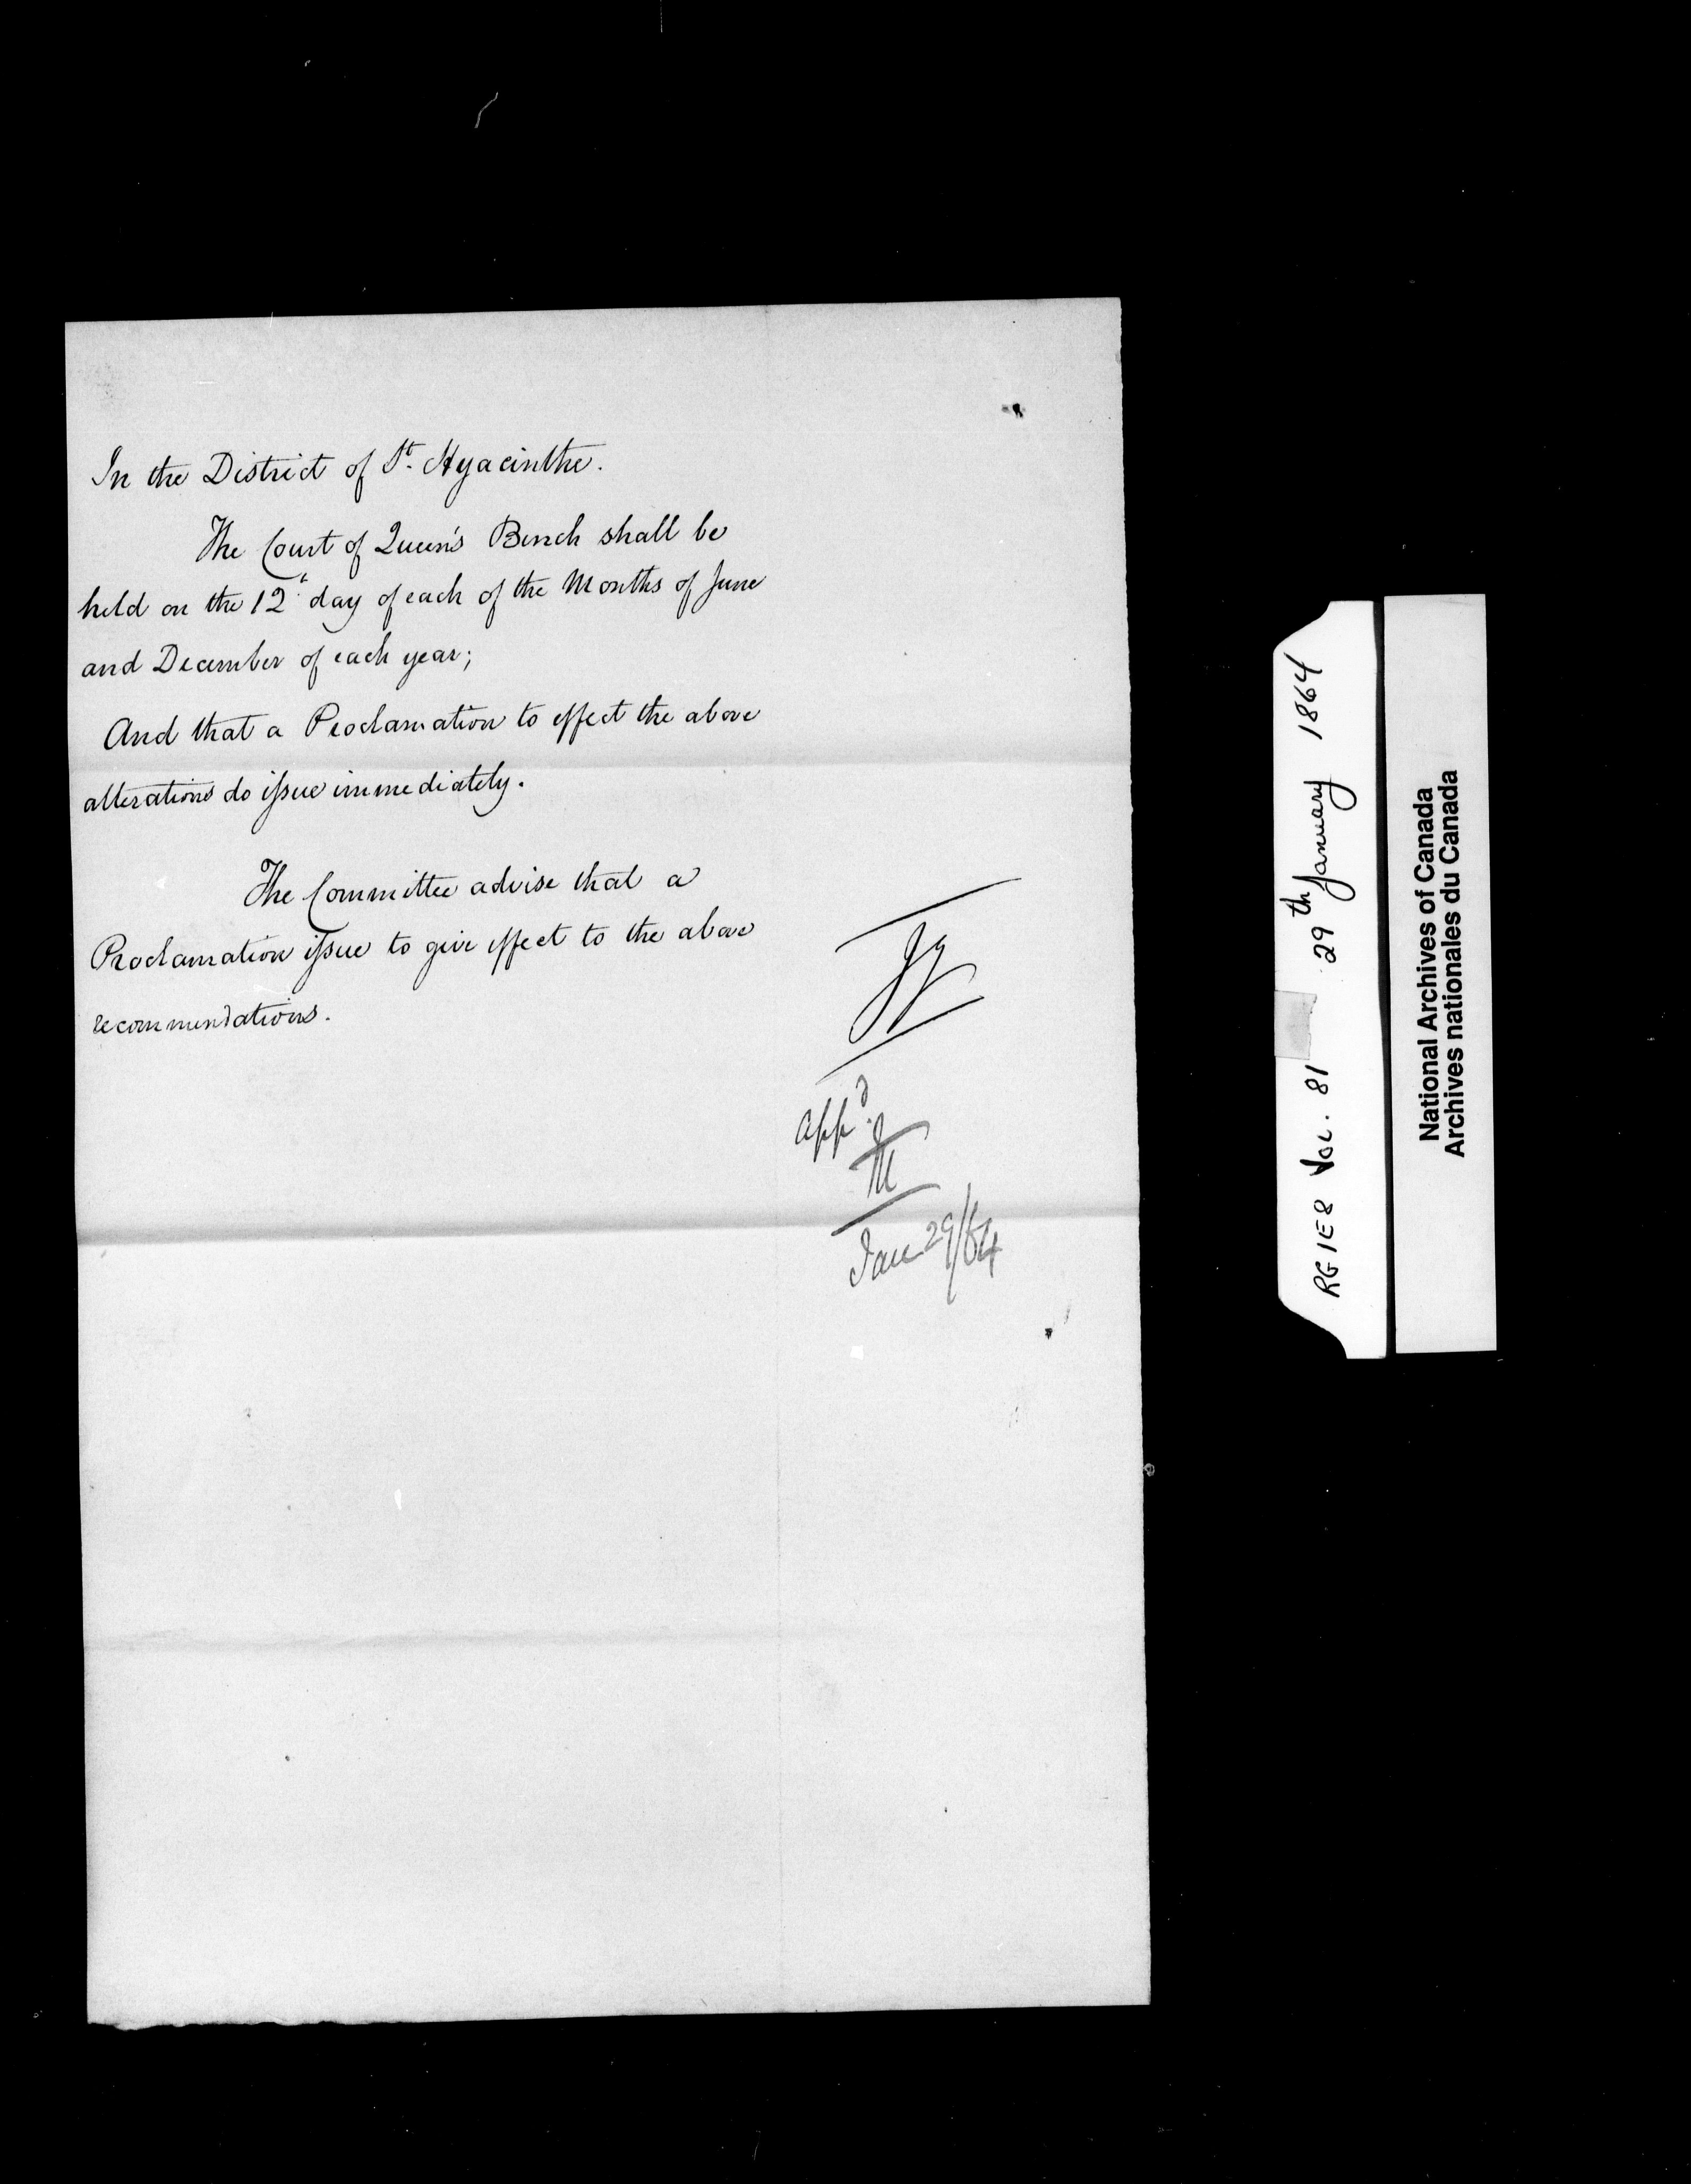 In the District of St. Hyacinthe.
The Court of Queen's Bench shall be
held on the 12th day of each of the Months of June
and December of each year;
And that a Proclamation to effect the above
alterations do issue immediately.
The Committee advise that a
Proclamation issue to give effect to the above
recommendations.
appd.
M
Jan 29/64
RG 1E8 VOL. 81 29th January 1864
National Archives of Canada
Archives nationales du Canada